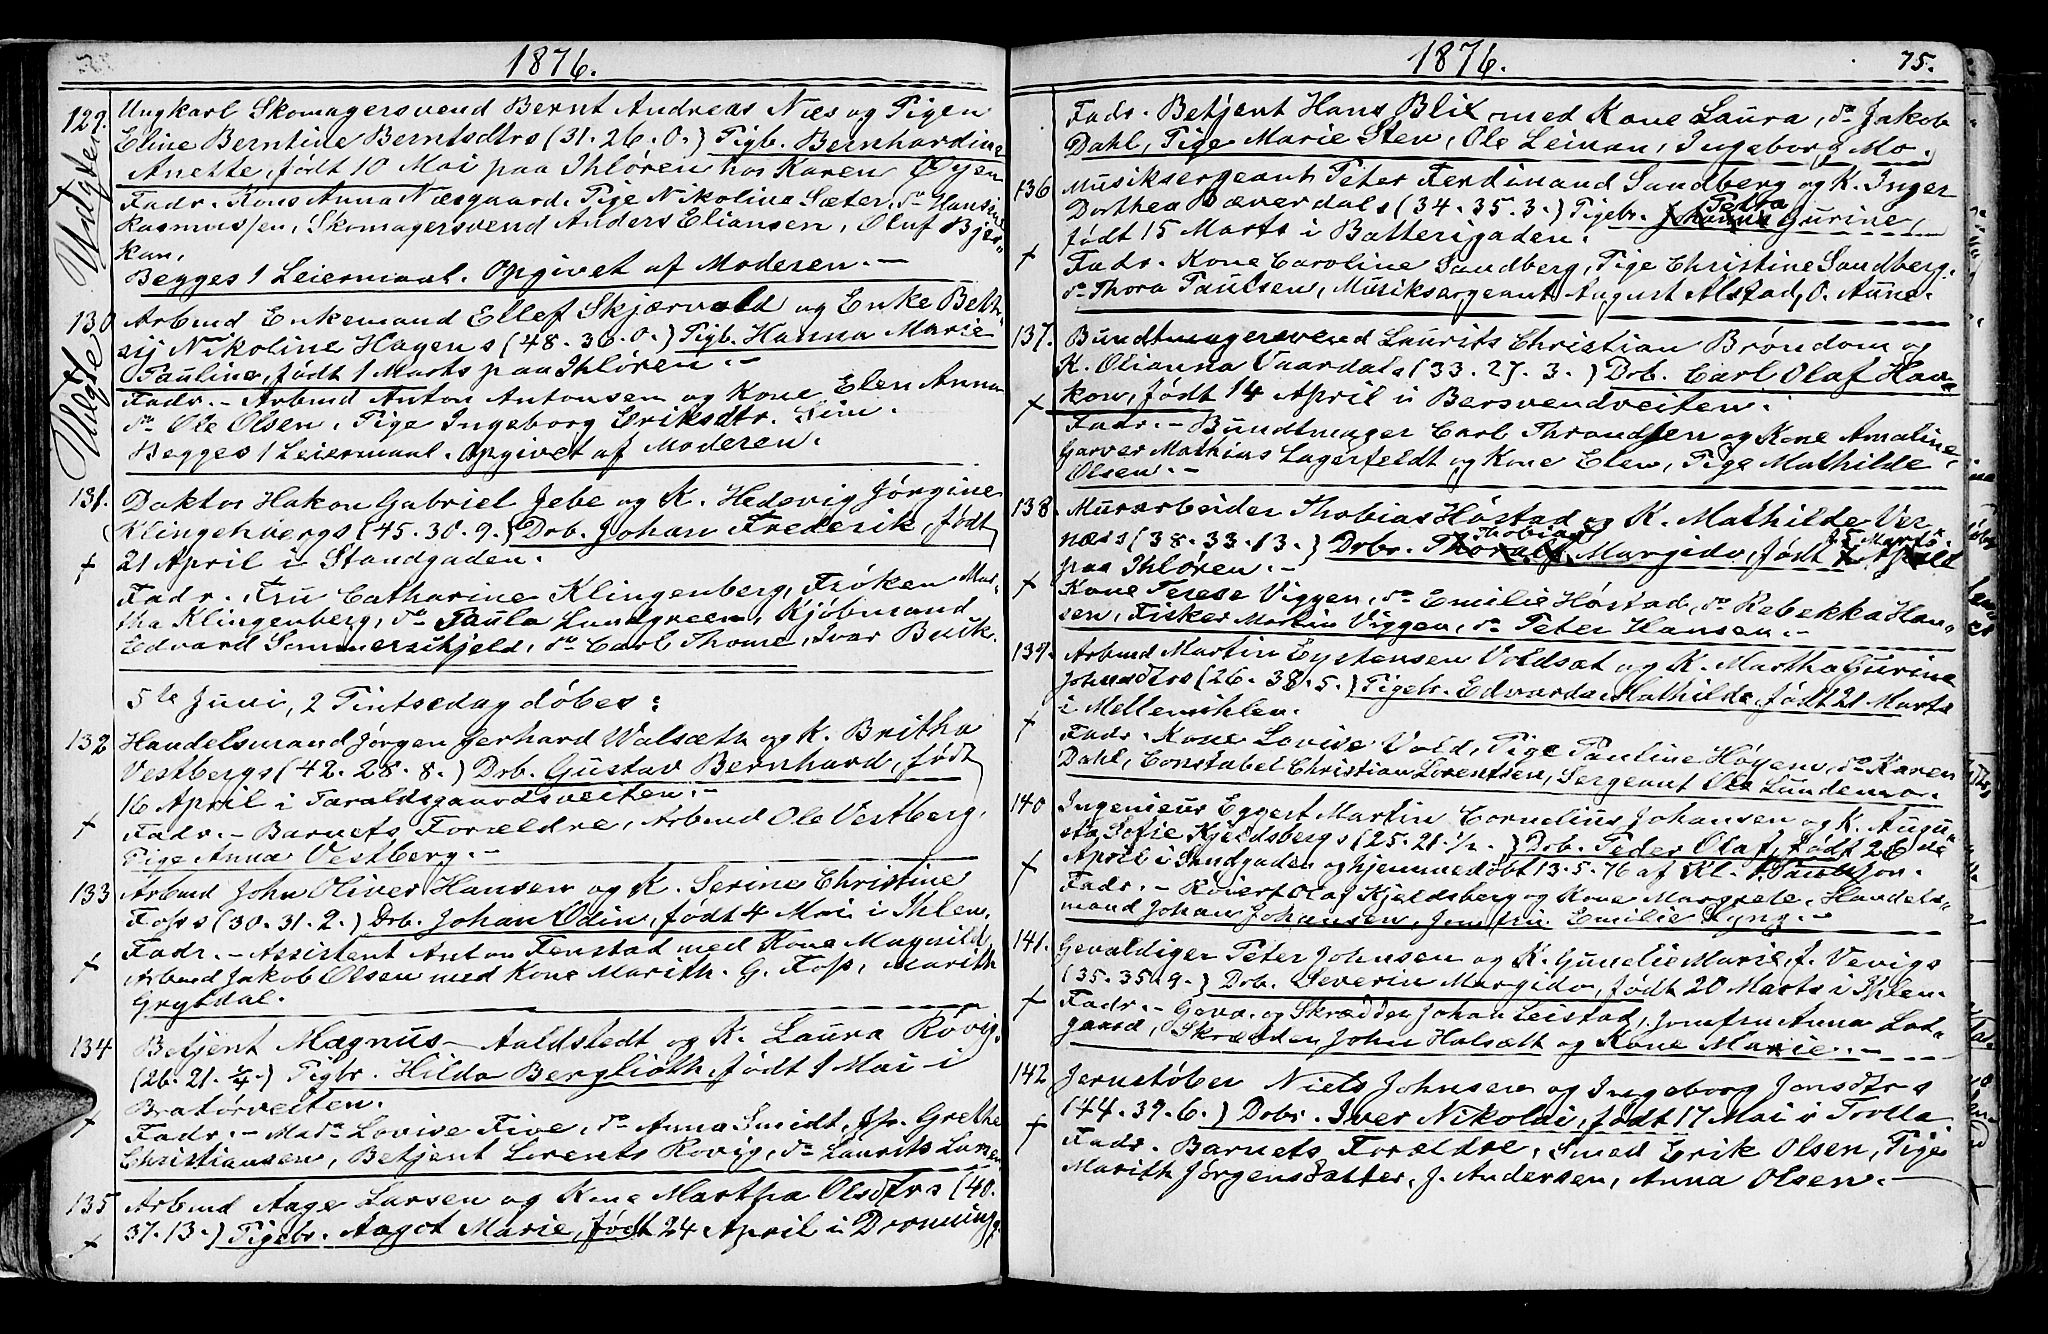 1876.
129. Ungkarl Skomagersvend Bernt Andreas Næs og Pigen
Eline Berntine Berntsdtrs (31. 26. 0.) Pigb. Bernhardine
Uægte
Anette, født 10 Mai paa Ihløren hos Karen Øyen
Fadr. Kone Anna Næsgaard, Pige Nikolina Sæter, do Hansine
Rasmussen, Skomagersvend Anders Eliansen, Oluf Bjer-
kan,
Begges 1 Leiermaal. Opgivet af Moderen. —
130 Arbmd Enkemand Ellef Skjærvold og Enke Beth-
sij Nikoline Hagens (48. 36. 0.) Pigb. Hanna Marie
Uægte
Pauline, født 1 Marts paa Ihløren. —
Fadr. — Arbmd Anton Antonsen og Kone Elen Anna
do Ole Olsen, Pige Ingeborg Eriksdtr. Lim.
Begges 1 Leiermaal. Opgivet af Moderen.
131. Doktor Hakon Gabriel Jebe og K. Hedevig Jørgine
Klingenbergs (45. 30. 9.) Drb. Johan Frederik, født
+ 21 April i Standgaden.
Fadr. Fru Catharine Klingenberg, Frøken Mar-
tha Klingenberg, do Paula Lundgreen, Kjøbmand
Edvard Sommerschjeld, do Carl Thome, Ivar Buck.
5te Juni, 2 Pintsedag døbes:
132 Handelsmand Jørgen Gerhard Walsæth og K. Britha
Vestbergs (42. 28. 8.) Drb. Gustav Bernhard, født
16 April i Taraldsgaardsveiten. —
+ Fadr. — Barnets Forældre, Arbmd Ole Vestberg,
Pige Anna Vestberg. —
133 Arbmd John Oliver Hansen og K. Serine Christine
Foss s (30. 31. 2.) Drb. Johan Odin, født 4 Mai i Ihlen.
Fadr. — Assistent Anton Fenstad med Kone Magnild,
+ Arbmd Jakob Olsen med Kone Marith. G. Foss, Marith
Grytdal.
134 Betjent Magnus Auldstedt og K. Laura Rövigs
(26. 21. ¼.) Pigbr. Hilda Berglioth, født 1 Mai i
Bratørveiten.
+ Fadr. — Mada Lovise Five, do Anna Smidt, Jfr. Grethe
Christiansen, Betjent Lorents Rovig, do Laurits Larsen
135 Arbmd Aage Larsen og Kone Martha Olsdtrs (40.
+ 37. 13.) Pigebr. Aagot Marie, født 24 April i Dronningg.
1876. 75.
Fadr. Betjent Hans Blix med Kone Laura, do Jakob
Dahl, Pige Marie Sten, Ole Leinan, Ingeborg Mo.
136 Musiksergeant Peter Ferdinand Sandberg og K. Inger
Dorthea Bæverdals (34. 35. 3.) Pigebr. Johanna Petra Gurine,
født 15 Marts i Batterigaden.
+ Fadr. Kone Caroline Sandberg, Pige Christine Sandberg.
do Thora Paulsen, Musiksergeant August Alstad, O. Aune.
137. Bundtmagersvend Laurits Christian Brøndom og
K. Olianna Vaardals (33. 27. 3.) Drb. Carl Olaf Haa-
+ kon, født 14 April i Bersvendveiten.
Fadr. — Bundtmager Carl Throndsen og Kone Amaline,
Garver Mathias Lagerfeldt og Kone Elen, Pige Mathilde
Olsen. —
138. Murarbeider Thobias Høstad og K. Mathilde Ver-
næss (38. 33. 13.) Drbr. Thoralf Thobias Margido, født 7 April 25 Marts.
paa Ihløren. —
+ Kone Terese Viggen, do Emilie Høstad, do Rebekka Han-
sen, Fisker Martin Viggen, do Peter Hansen. —
139. Arbmd Martin Eystensen Voldsæt og K. Martha Gurine
Johnsdtrs (26. 38. 5.) Pigebr. Edvarda Mathilde, født 21 Marts
i Mellemihlen.
+ Fadr. Kone Lovise Vold, Pige Pauline Høyem, do Karen
Dahl, Constabel Christian Lorentsen, Sergeant Ole Lundemo.
140 Ingenieur Eggert Martin Cornelius Johansen og K. Augu-
sta Sofie Kjeldsbergs (25. 21. ½.) Drb. Peder Olaf, født 26 de
April i Sandgaden og hjemmedøbt 13.5.76 af Kl.
+ Fadr. — Robert Olaf Kjeldsberg og Kone Margrete, Handels-
mand Johan Johansen, Jomfru Emilie Lyng. —
141. Gevaldiger Peter Johnsen og K. Gunelie Marie J. Vevigs
(35. 35. 9.) Drb. Severin Margido, født 20 Marts i Ihlen.
+ Fadr. — Geva. og Skrædder Johan Leistad, Jomfru Anna Lut-
gaard, Skrædder John Halsætt og Kone Marie. —
142 Jernstøber Niels Johnsen og Ingeborg Jonsdtrs
(44. 39. 6.) Drbr. Iver Nikolai, født 17 Mai i Tvella
+ Fadr. Barnets Forældre, Smed Erik Olsen, Pige
Marith Jørgensdatter, J. Andersen, Anna Olsen. —